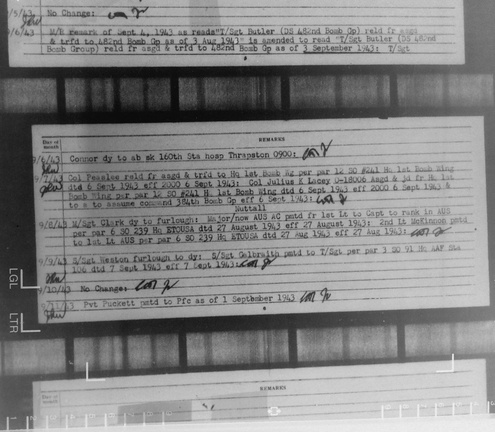 /5/43 No Change:
/6/43 M/R remark of Sept 4, 1943 as reads "T/Sgt Butler (DS 482nd Bomb Gp) reld fr asgd
& trfd to 482nd Bomb Gp as of 3 Aug 1943" is amended to read "T/Sgt Butler (DS 482nd
Bomb Group) reld fr asgd & trfd to 482nd Bomb Gp as of 3 September 1943: T/Sgt
Day of month
REMARKS
9/6/43 Connor dy to ab sk 160th Sta hosp Thrapston 0900:
9/7/43 Col Peaslee reld fr asgd & trfd to Hq 1st Bomb Wg per par 12 SO #241 H. 1st Bomb Wing
dtd 6 Sept 1943 eff 2000 6 Sept 1943: Col Julius K Lacey O-18006 Asgd & jd fr Hq 1st
Bomb Wing per par 12 SO #241 H. 1st Bomb Wing dtd 6 Sept 1943 eff 2000 6 Sept 1943 &
to assume command 384th Bomb Gp eff 6 Sept 1943:
Nuttall
9/8/43 M/Sgt Clark dy to furlough: Major/now AUS AC pmtd fr 1st Lt to Capt to rank in AUS
per par 6 SO 239 HQ ETOUSA dtd 27 August 1943 eff 27 August 1943: 2nd Lt McKinnon pmtd
to 1st Lt AUS per par 6 SO 239 Hq ETOUSA dtd 27 Aug 1943 eff 27 Aug 1943:
9/9/43 S/Sgt Weston furlough to dy: S/Sgt Galbraith pmtd to T/Sgt per par 3 SO 91 Hq AAF Sta
106 dtd 7 Sept 1943 eff 7 Sept 1943:
9/10/43 No Change:
9/11/43 Pvt Puckett pmtd to Pfc as of 1 September 1943
LGL
LTR
Day of month
REMARKS